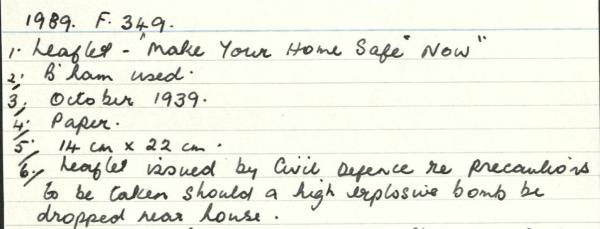 1989. F. 349.
1. Leaflet - "Make Your Home Safe" Now"
2. B'ham used.
3. October 1939.
4. Paper.
5. 14 cm x 22 cm.
6. Leaflet issued by Civil Defence re precautions
to be taken should a high explosive bomb be
dropped near house.